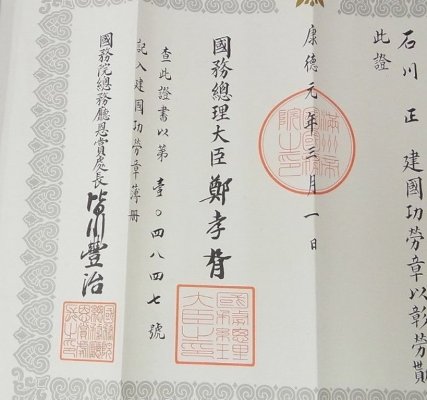 石川正建國功勞章以彰勞勩
此證
康德元年三月一日
國務總理大臣鄭孝胥
查此證書以第壹〇四八四七號
記入建國功勞章簿冊
國務院總務廳恩賞處長皆川豐治